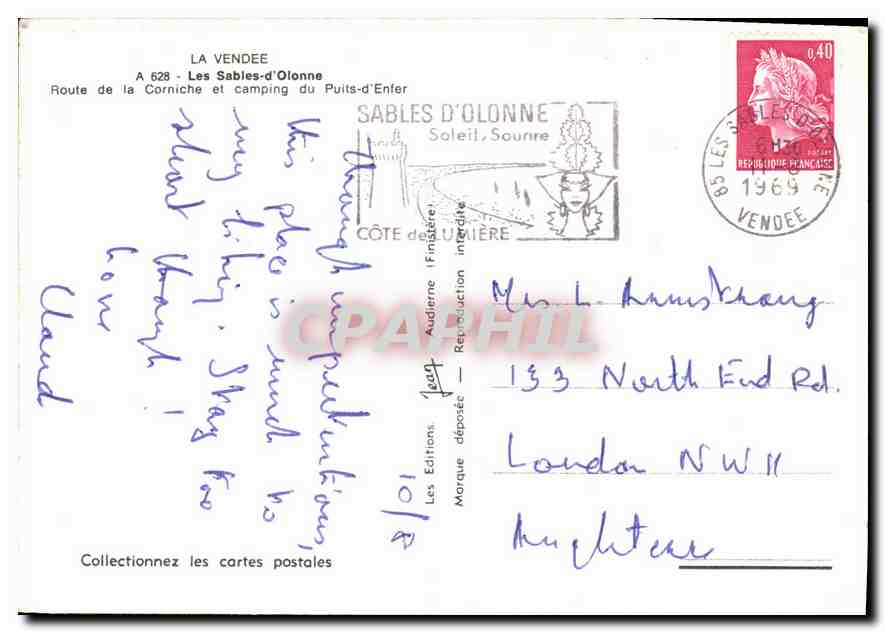 LA VENDEE
A 628 - Les Sables-d'Olonne
Route de la Corniche et camping du Puits-d'Enfer
SABLES D'OLONNE
Soleil. Sourire
CÔTE de LUMIÈRE
0,40
REPUBLIQUE FRANCAISE
85 LES SABLES D'OLONNE
1969
VENDEE
10/8
Though unpretentious,
this place is much to
my liking. Stay too
short though!
Love
Claud
Les Editions Jean Audierne (Finistère)
Marque déposée — Reproduction interdite
Mrs L. Armstrong
133 North End Rd.
London NW11
Angleterre
Collectionnez les cartes postales
CPAPHIL